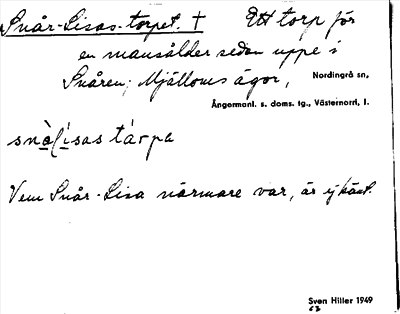 Snår-Lisas-torpet. † Ett torp för
en mansålder sedan uppe i
Snåren; Mjälloms ägor, Nordingrå sn,
Ångermanl. s. doms. tg., Västernorrl. l.
snå̀lísas tárpa
Vem Snår-Lisa närmare var, är ej känt.
Sven Hiller 1949